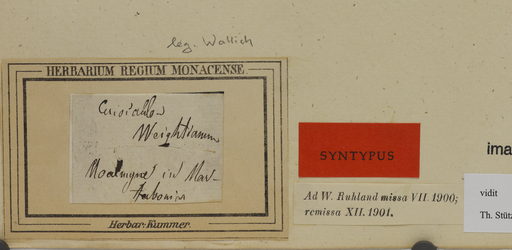 leg. Wallich
HERBARIUM REGIUM MONACENSE
Weightianum
in
Herbar. Kummer.
SYNTYPUS
Ad W. Ruhland missa VII. 1900;
remissa XII. 1901.
ima
vidit
Th. Stütz